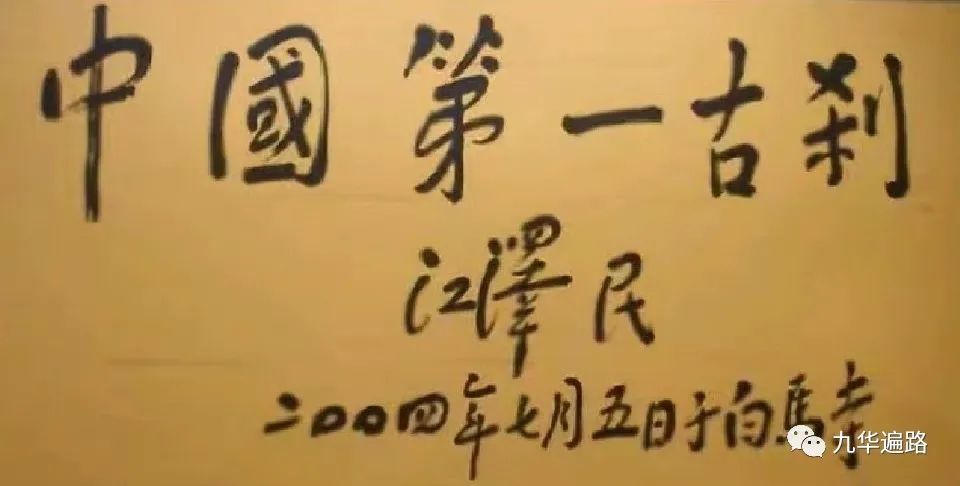 中國第一古刹
江澤民
二00四年七月五日于白馬寺
九华遍路